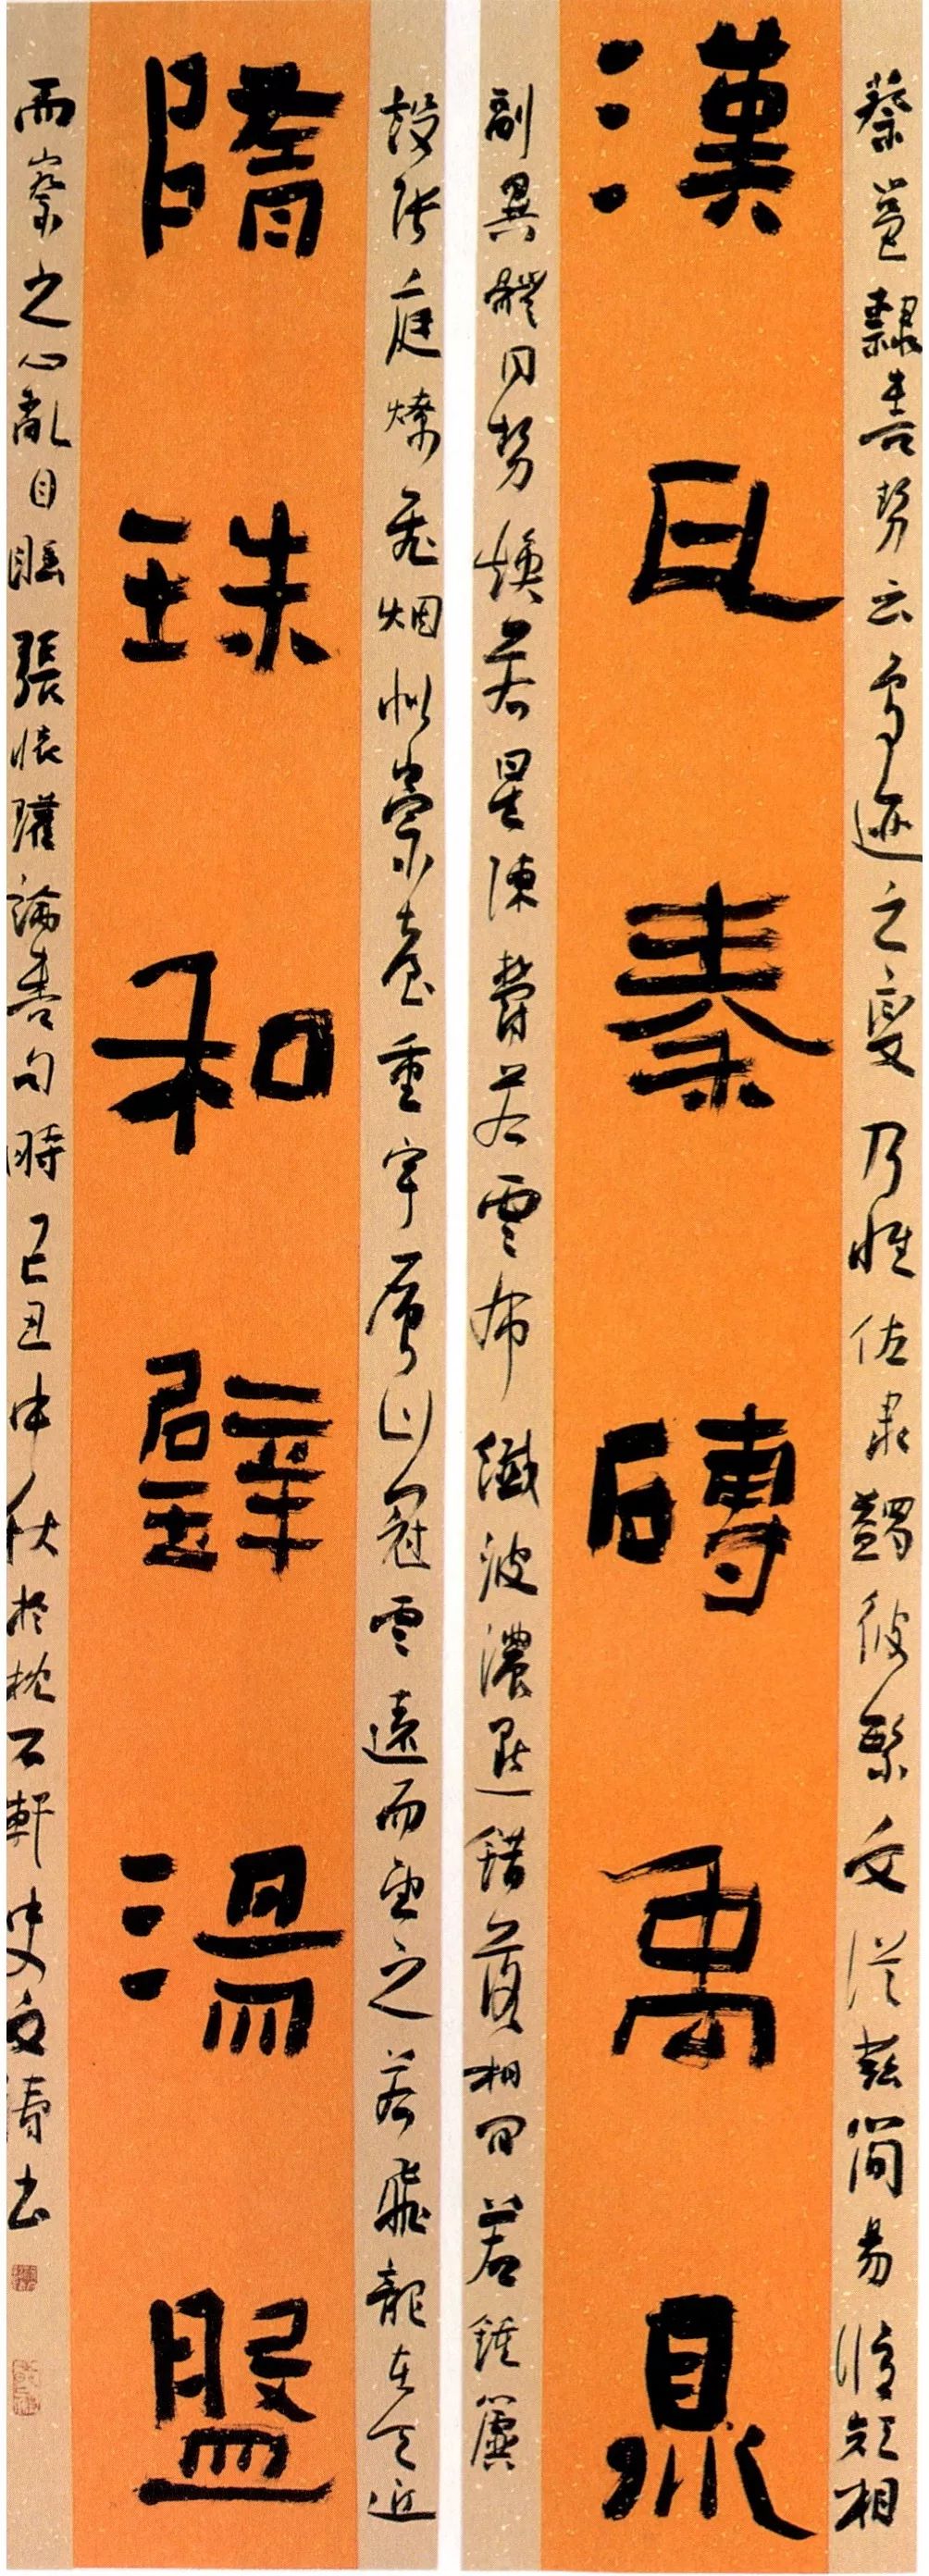 蔡邕隸書勢云鳥迹之變乃惟佐隸蠲彼繁文從茲簡易修短相
漢瓦秦磚禹鼎
副異體同勢煥若星陳鬱若雲布纖波濃點錯落相間若鍾簴
設張庭燎飛烟似崇臺重宇層山冠雲遠而望之若飛龍在天近
隋珠和璧湯盤
而察之心亂目眩張懷瓘論書句時己丑中秋於枕石軒中史文濤书